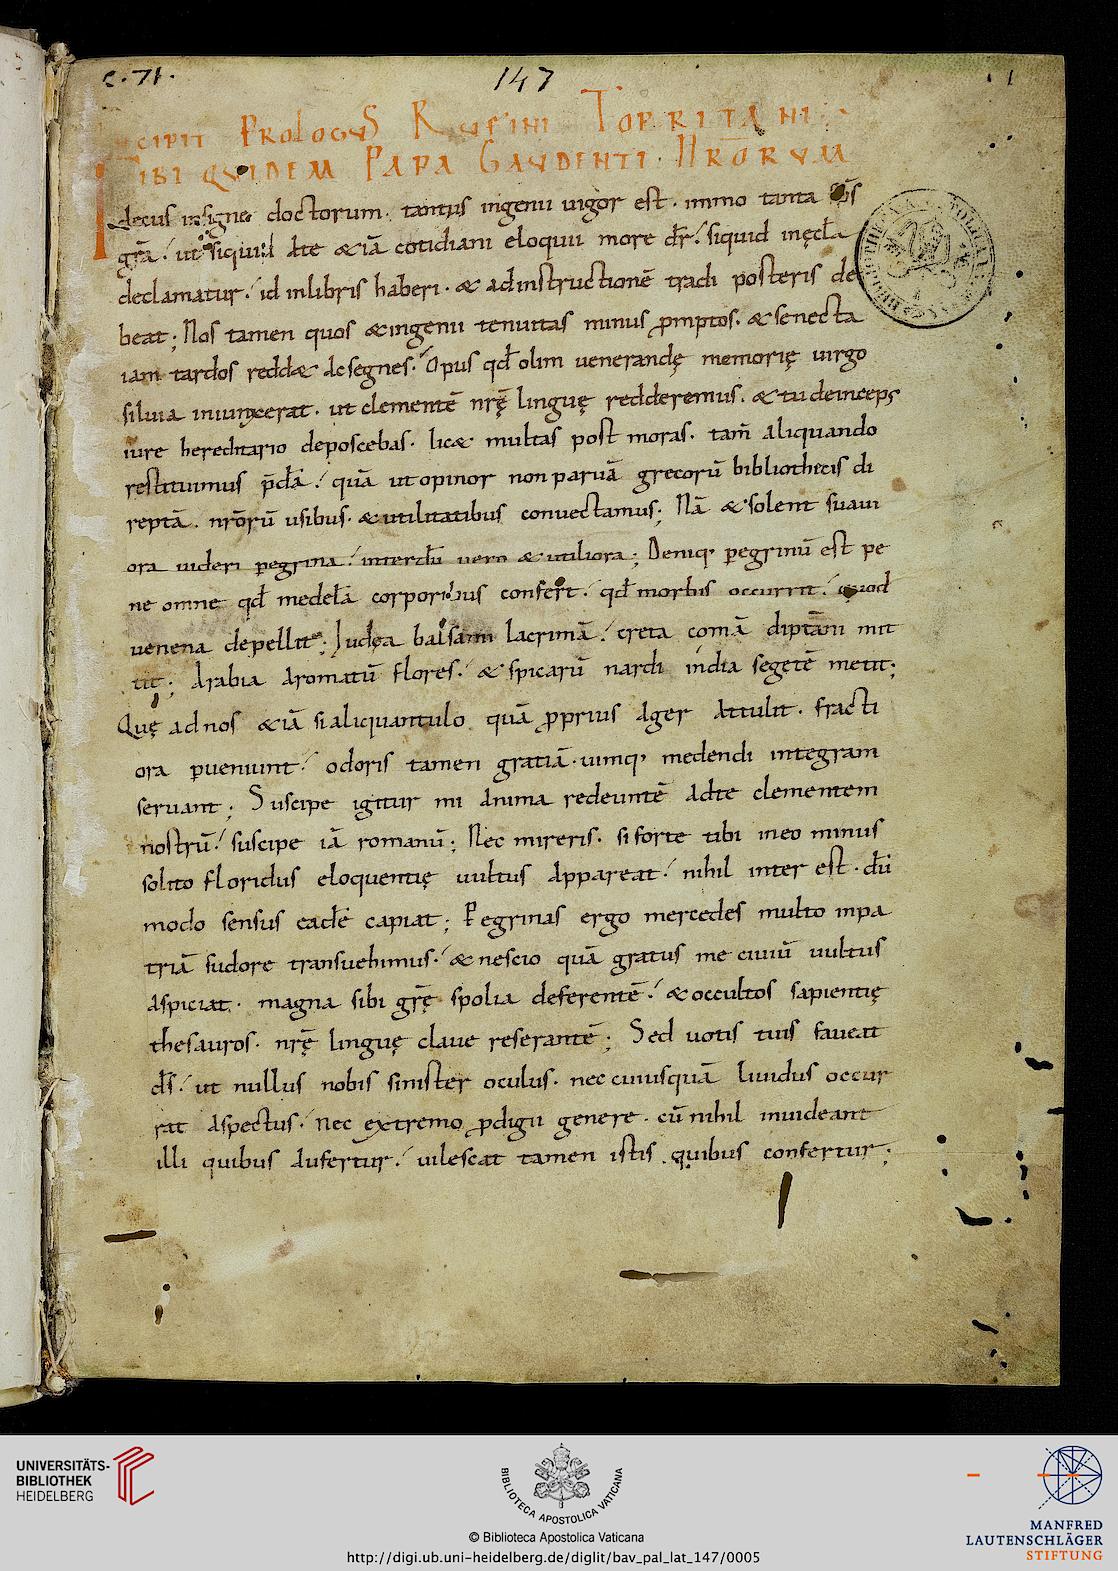 c. 71.
147
1
CIPIT PROLOGUS RUFINI TORRITANI
IBI QUIDEM PAPA GAUDENTI NRORUM
decus insigne doctorum. tantus ingenii uigor est. immo tanta sp̄s
grā. ut siquid dte &iā cotidiani eloquii more dr̄. siquid inęccl̄a
declamatur. id inlibris haberi. & adinstructionē tradi posteris de
beat; Nos tamen quos &ingenii tenuitas minus p̄mptos. &senecta
iam tardos redd& desegnes. Opus qd̄ olim uenerandę memorię uirgo
siluia iniunxerat. ut clementē nrę̄ linguę redderemus. &tu deinceps
iure hereditario deposcebas. lic& multas post moras. tam̄ aliquando
restituimus p̄dā. quā ut opinor non paruā grecorū bibliothecis di
reptā. nrōrū usibus. &utilitatibus conuectamus; Nā &solent suaui
ora uideri pegrina. interdū uero &utiliora; Deniq; pegrinū est pe
ne omne qd̄ medelā corporibus confert. qd̄ morbis occurrit. quod
uenena depellit; Iudęa balsami lacrimā. creta comā diptāni mit
tit; Arabia aromatū flores. & spicarū nardi india segetē metit;
Quę ad nos &iā si aliquantulo quā p̄prius ager attulit. fracti
ora pueniunt. odoris tamen gratiā. uimq; medendi integram
seruant; Suscipe igitur mi anima redeuntē adte clementem
nostrū. suscipe iā romanū; Nec mireris. si forte tibi ineo minus
solito floridus eloquentię uultus appareat. nihil inter est. dū
modo sensus eadē capiat; Pegrinas ergo mercedes multo inpa
triā sudore transuehimus. &nescio quā gratus me ciuiū uultus
aspiciat. magna sibi grę̄ spolia deferentē. &occultos sapientię
thesauros. nrę̄ linguę claue reserantē; Sed uotis tuis faueat
dś. ut nullus nobis sinister oculus. nec cuiusquā liuidus occur
rat aspectus. nec extremo p̄digii genere. cū nihil inuideant
illi quibus aufertur. uilescat tamen istis quibus confertur;
UNIVERSITÄTS-
BIBLIOTHEK
HEIDELBERG
BIBLIOTECA APOSTOLICA VATICANA
© Biblioteca Apostolica Vaticana
http://digi.ub.uni-heidelberg.de/diglit/bav_pal_lat_147/0005
MANFRED
LAUTENSCHLÄGER
STIFTUNG